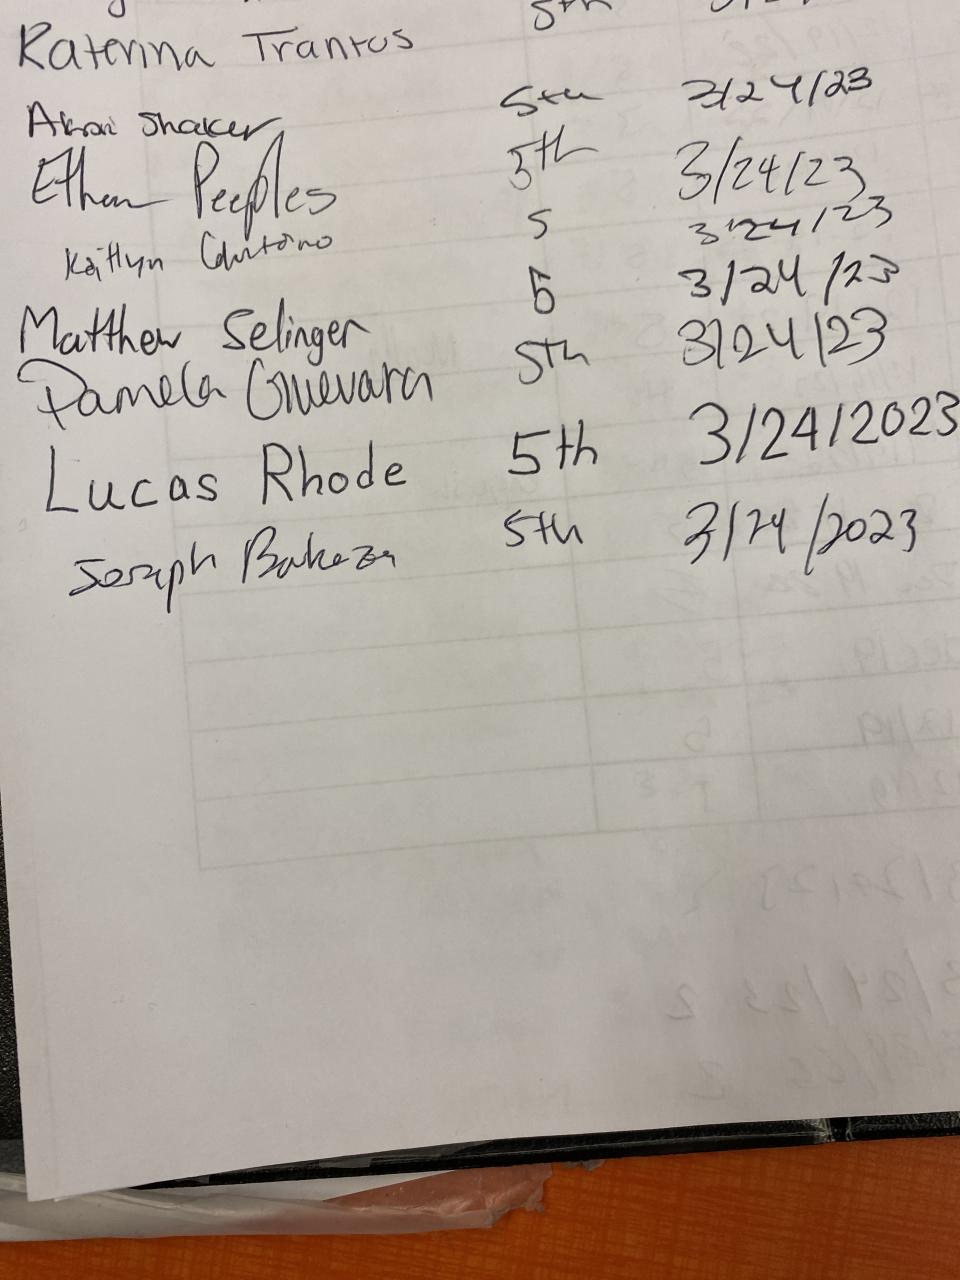 Katerina Trantos 5th
Shaker 5th 3/24/23
Ethan Peeples 5th 3/24/23
Kaitlyn 5 3/24/23
Matthew Selinger 5 3/24/23
Pamela Guevara 5th 3/24/23
Lucas Rhode 5th 3/24/2023
Joseph 5th 3/24/2023